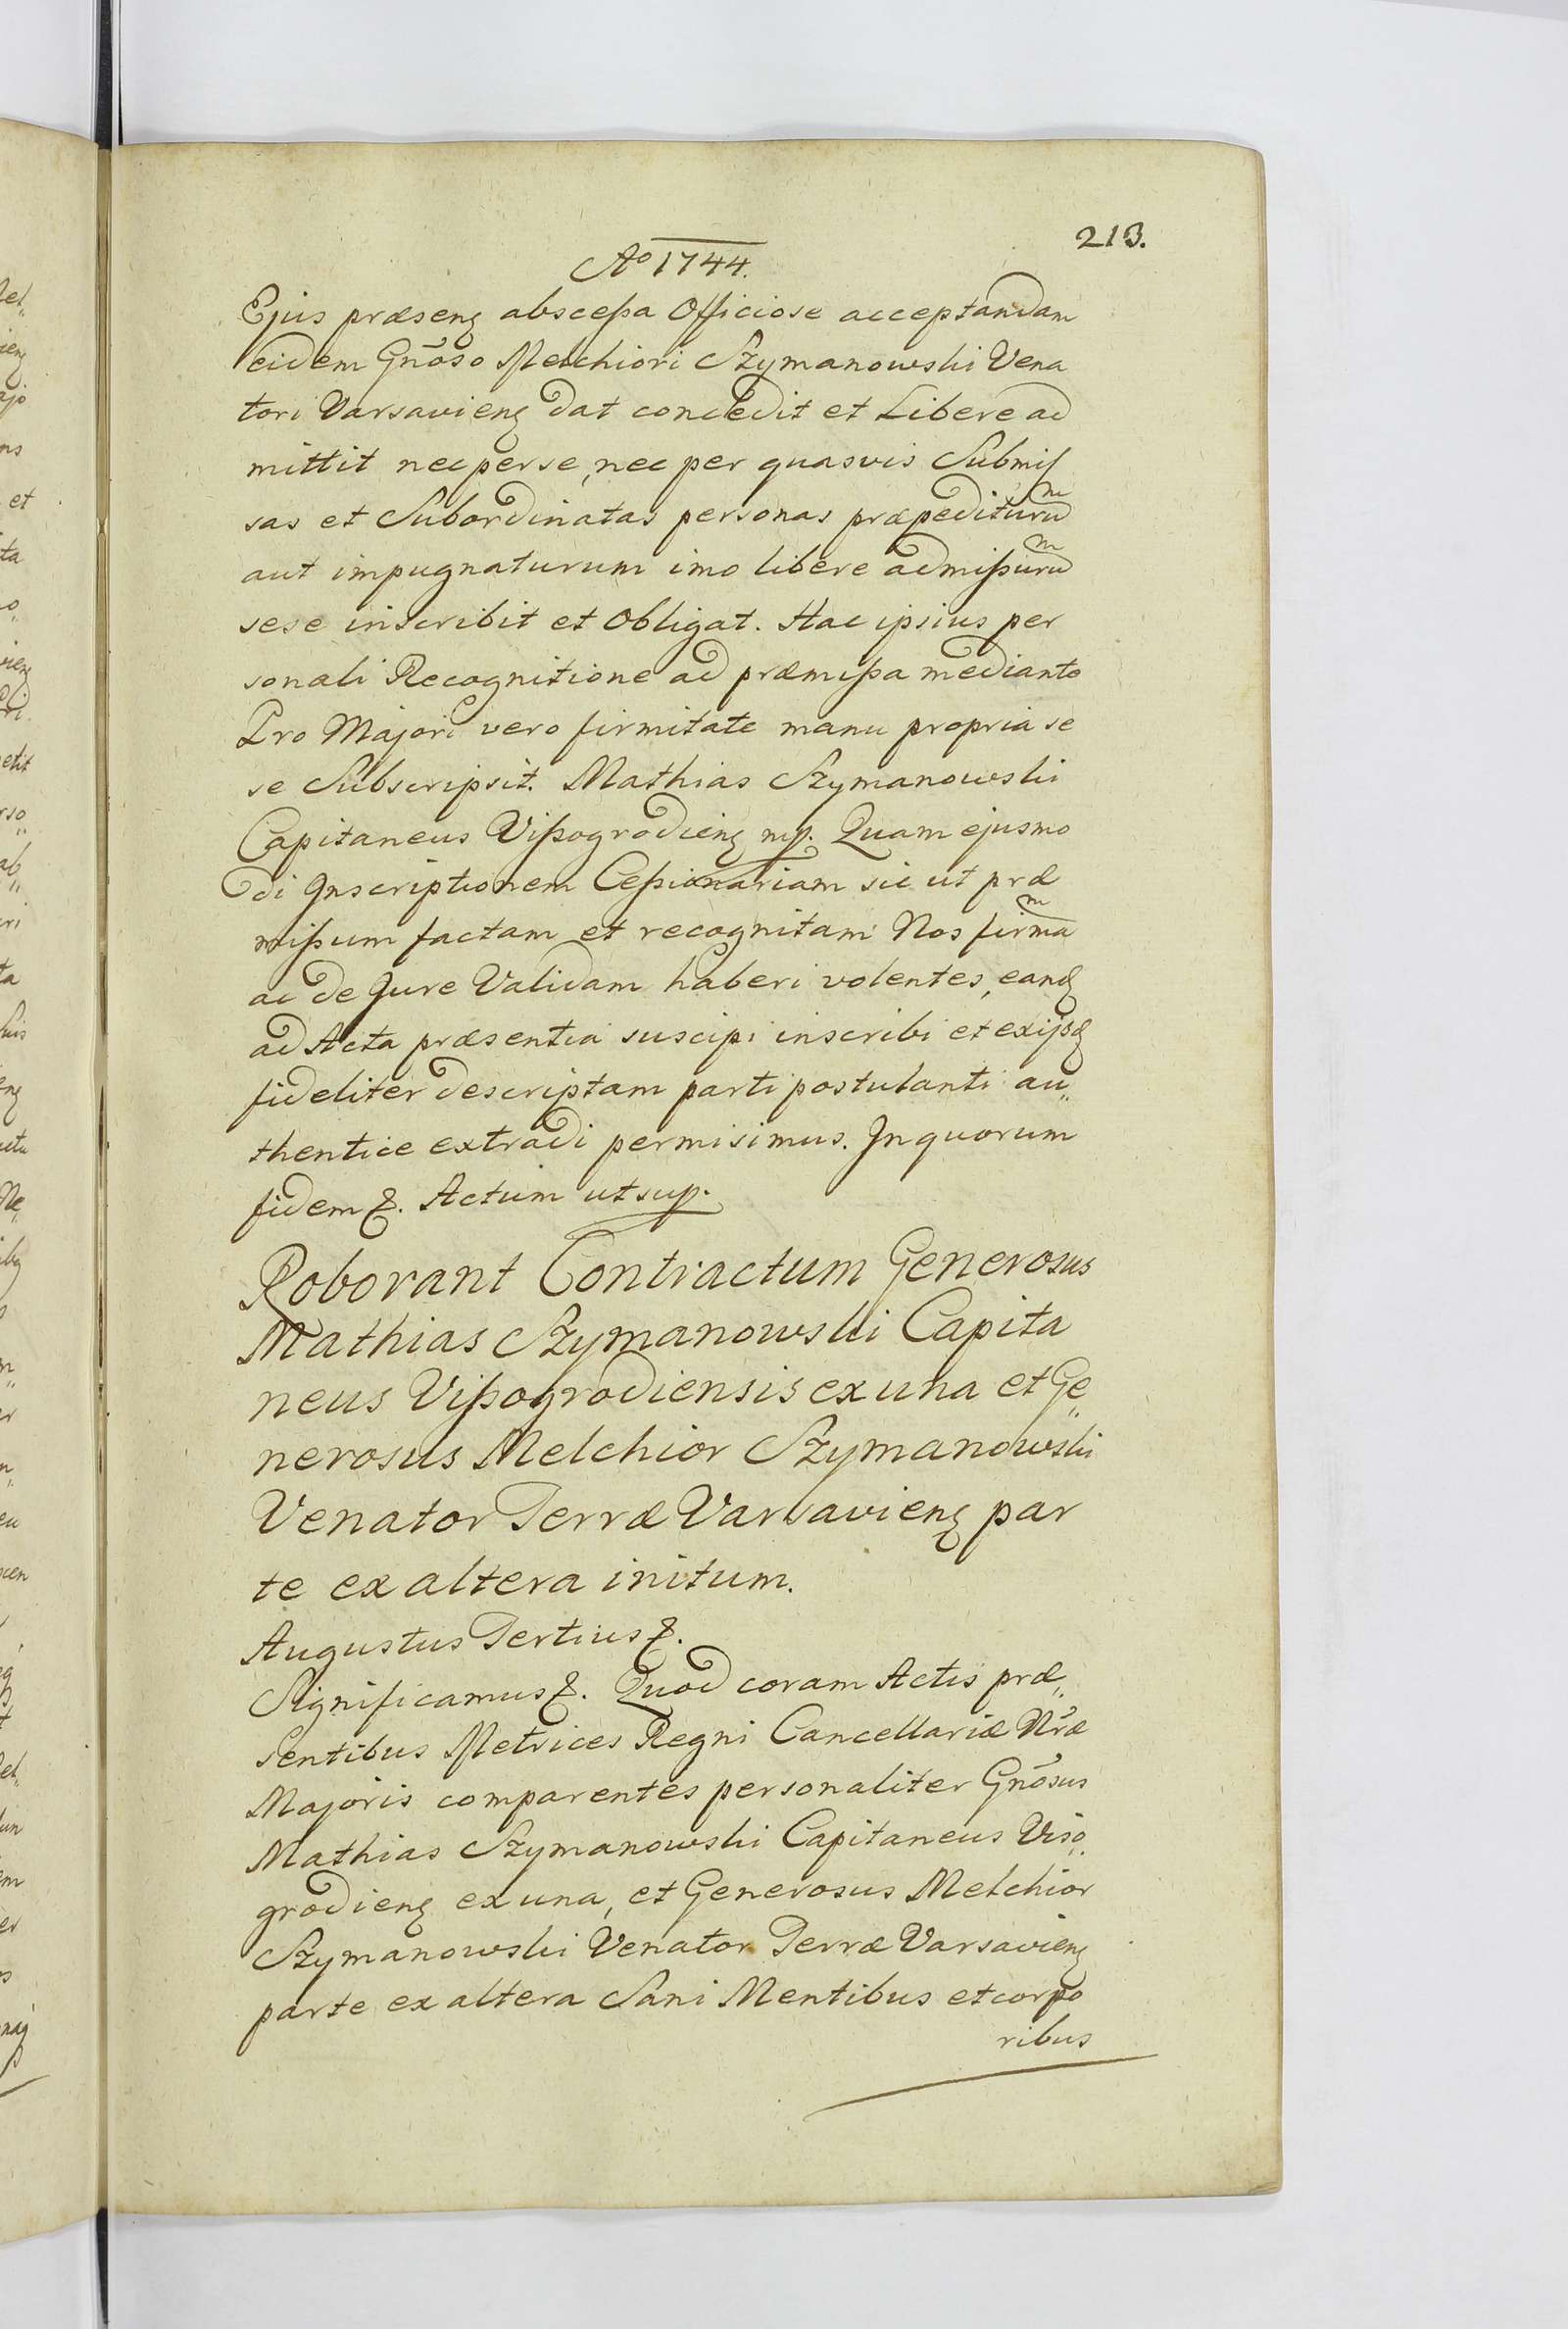 213.
Ao 1744.
Ejus præsenꝫ abscessa Officiose acceptandam
eidem Gñoso Melchiori Szymanowski Vena
tori Varsavienꝫ dat concedit et Libere ad
mittit nec per se, nec per quasvis Submis
sas et Subordinatas personas præpediturum
aut impugnaturum imo libere admissurum
sese inscribit et Obligat. Hac ipsius per
sonali Recognitione ad præmissa mediante
Pro Majori vero firmitate manu propria se
se Subscripsit. Mathias Szymanowski
Capitaneus Vissogrodienꝫ mp. Quam ejusmo
di Inscriptionem Cessionariam sic ut præ
missum factam et recognitam Nos firmam
ac de Jure Validam haberi volentes, eanqꝫ
ad Acta præsentia suscipi inscribi et ex ijsqꝫ
fideliter descriptam parti postulanti au„
thentice extradi permisimus. In quorum
fidem &. Actum ut sup.
Roborant Contractum Generosus
Mathias Szymanowski Capita
neus Vissogrodiensis ex una et Ge„
nerosus Melchior Szymanowski
Venator Terræ Varsavienꝫ par
te ex altera initum.
Augustus Tertius &.
Significamus &. Quod coram Actis præ„
sentibus Metrices Regni Cancellariæ Nr̃æ
Majoris comparentes personaliter Gñosus
Mathias Szymanowski Capitaneus Viso„
grodienꝫ ex una, et Generosus Melchior
Szymanowski Venator Terræ Varsavienꝫ
parte ex altera Sani Mentibus et corpo
ribus